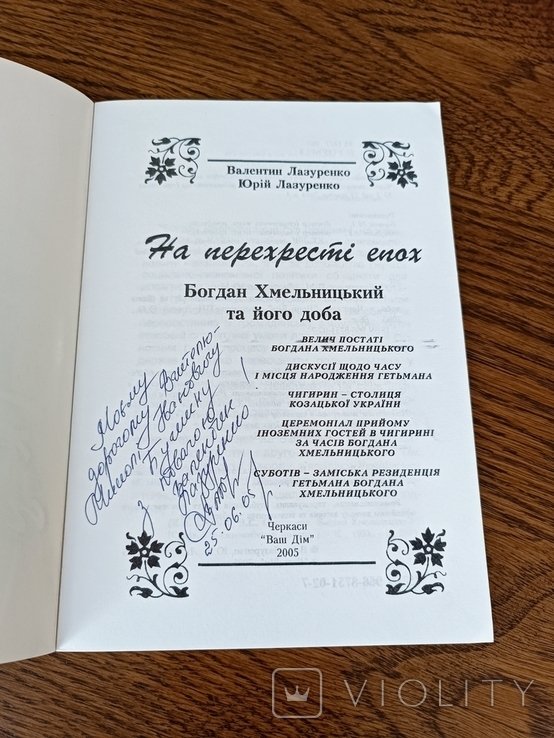 Валентин Лазуренко
Юрій Лазуренко
На перехресті епох
Богдан Хмельницький
та його доба
ВЕЛИЧ ПОСТАТІ
БОГДАНА ХМЕЛЬНИЦЬКОГО
ДИСКУСІЇ ЩОДО ЧАСУ
І МІСЦЯ НАРОДЖЕННЯ ГЕТЬМАНА
ЧИГИРИН – СТОЛИЦЯ
КОЗАЦЬКОЇ УКРАЇНИ
ЦЕРЕМОНІАЛ ПРИЙОМУ
ІНОЗЕМНИХ ГОСТЕЙ В ЧИГИРИНІ
ЗА ЧАСІВ БОГДАНА
ХМЕЛЬНИЦЬКОГО
СУБОТІВ – ЗАМІСЬКА РЕЗИДЕНЦІЯ
ГЕТЬМАНА БОГДАНА
ХМЕЛЬНИЦЬКОГО
Моєму
дорогому
Івановичу
З повагою
Валентин
Лазуренко
25.06.05
Черкаси
"Ваш Дім"
2005
VIOLITY